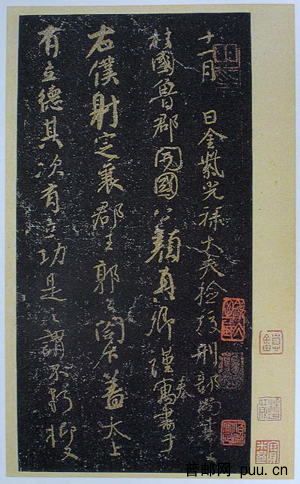 十一月 日金紫光禄大夫检挍刑部尚書上
柱國魯郡開國公顔真卿謹奉寓書于
右僕射定襄郡王郭公閣下盖太上
有立德其次有立功是之謂不朽抑又
音邮网 puu.cn